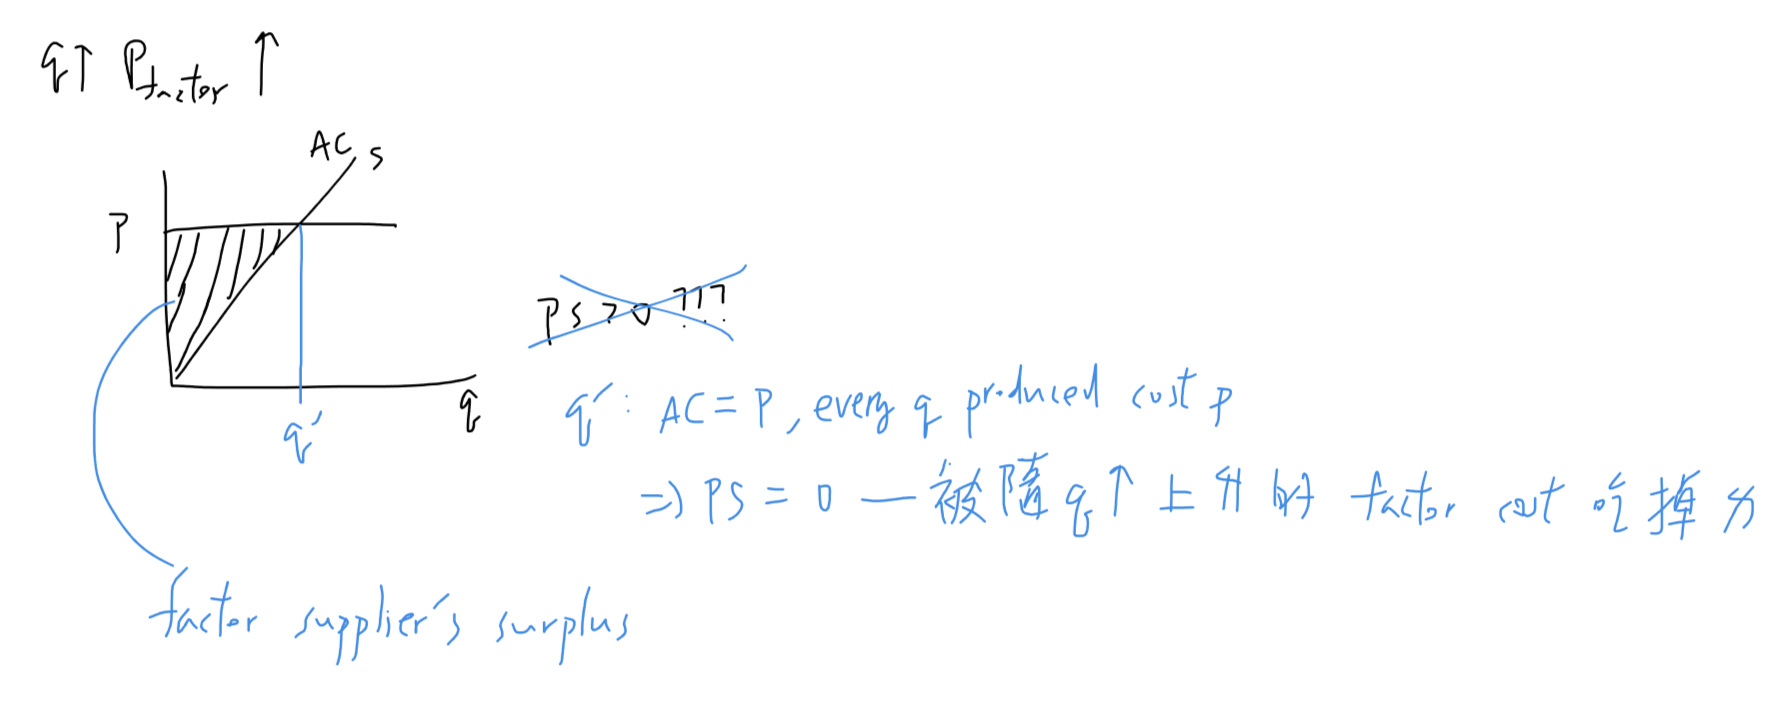 q↑ Pfactor ↑
AC s
P
PS > 0 ???
q
q′
q′: AC = P, every q produced cost P
⇒ PS = 0 — 被隨 q↑ 上升的 factor cost 吃掉了
factor supplier's surplus